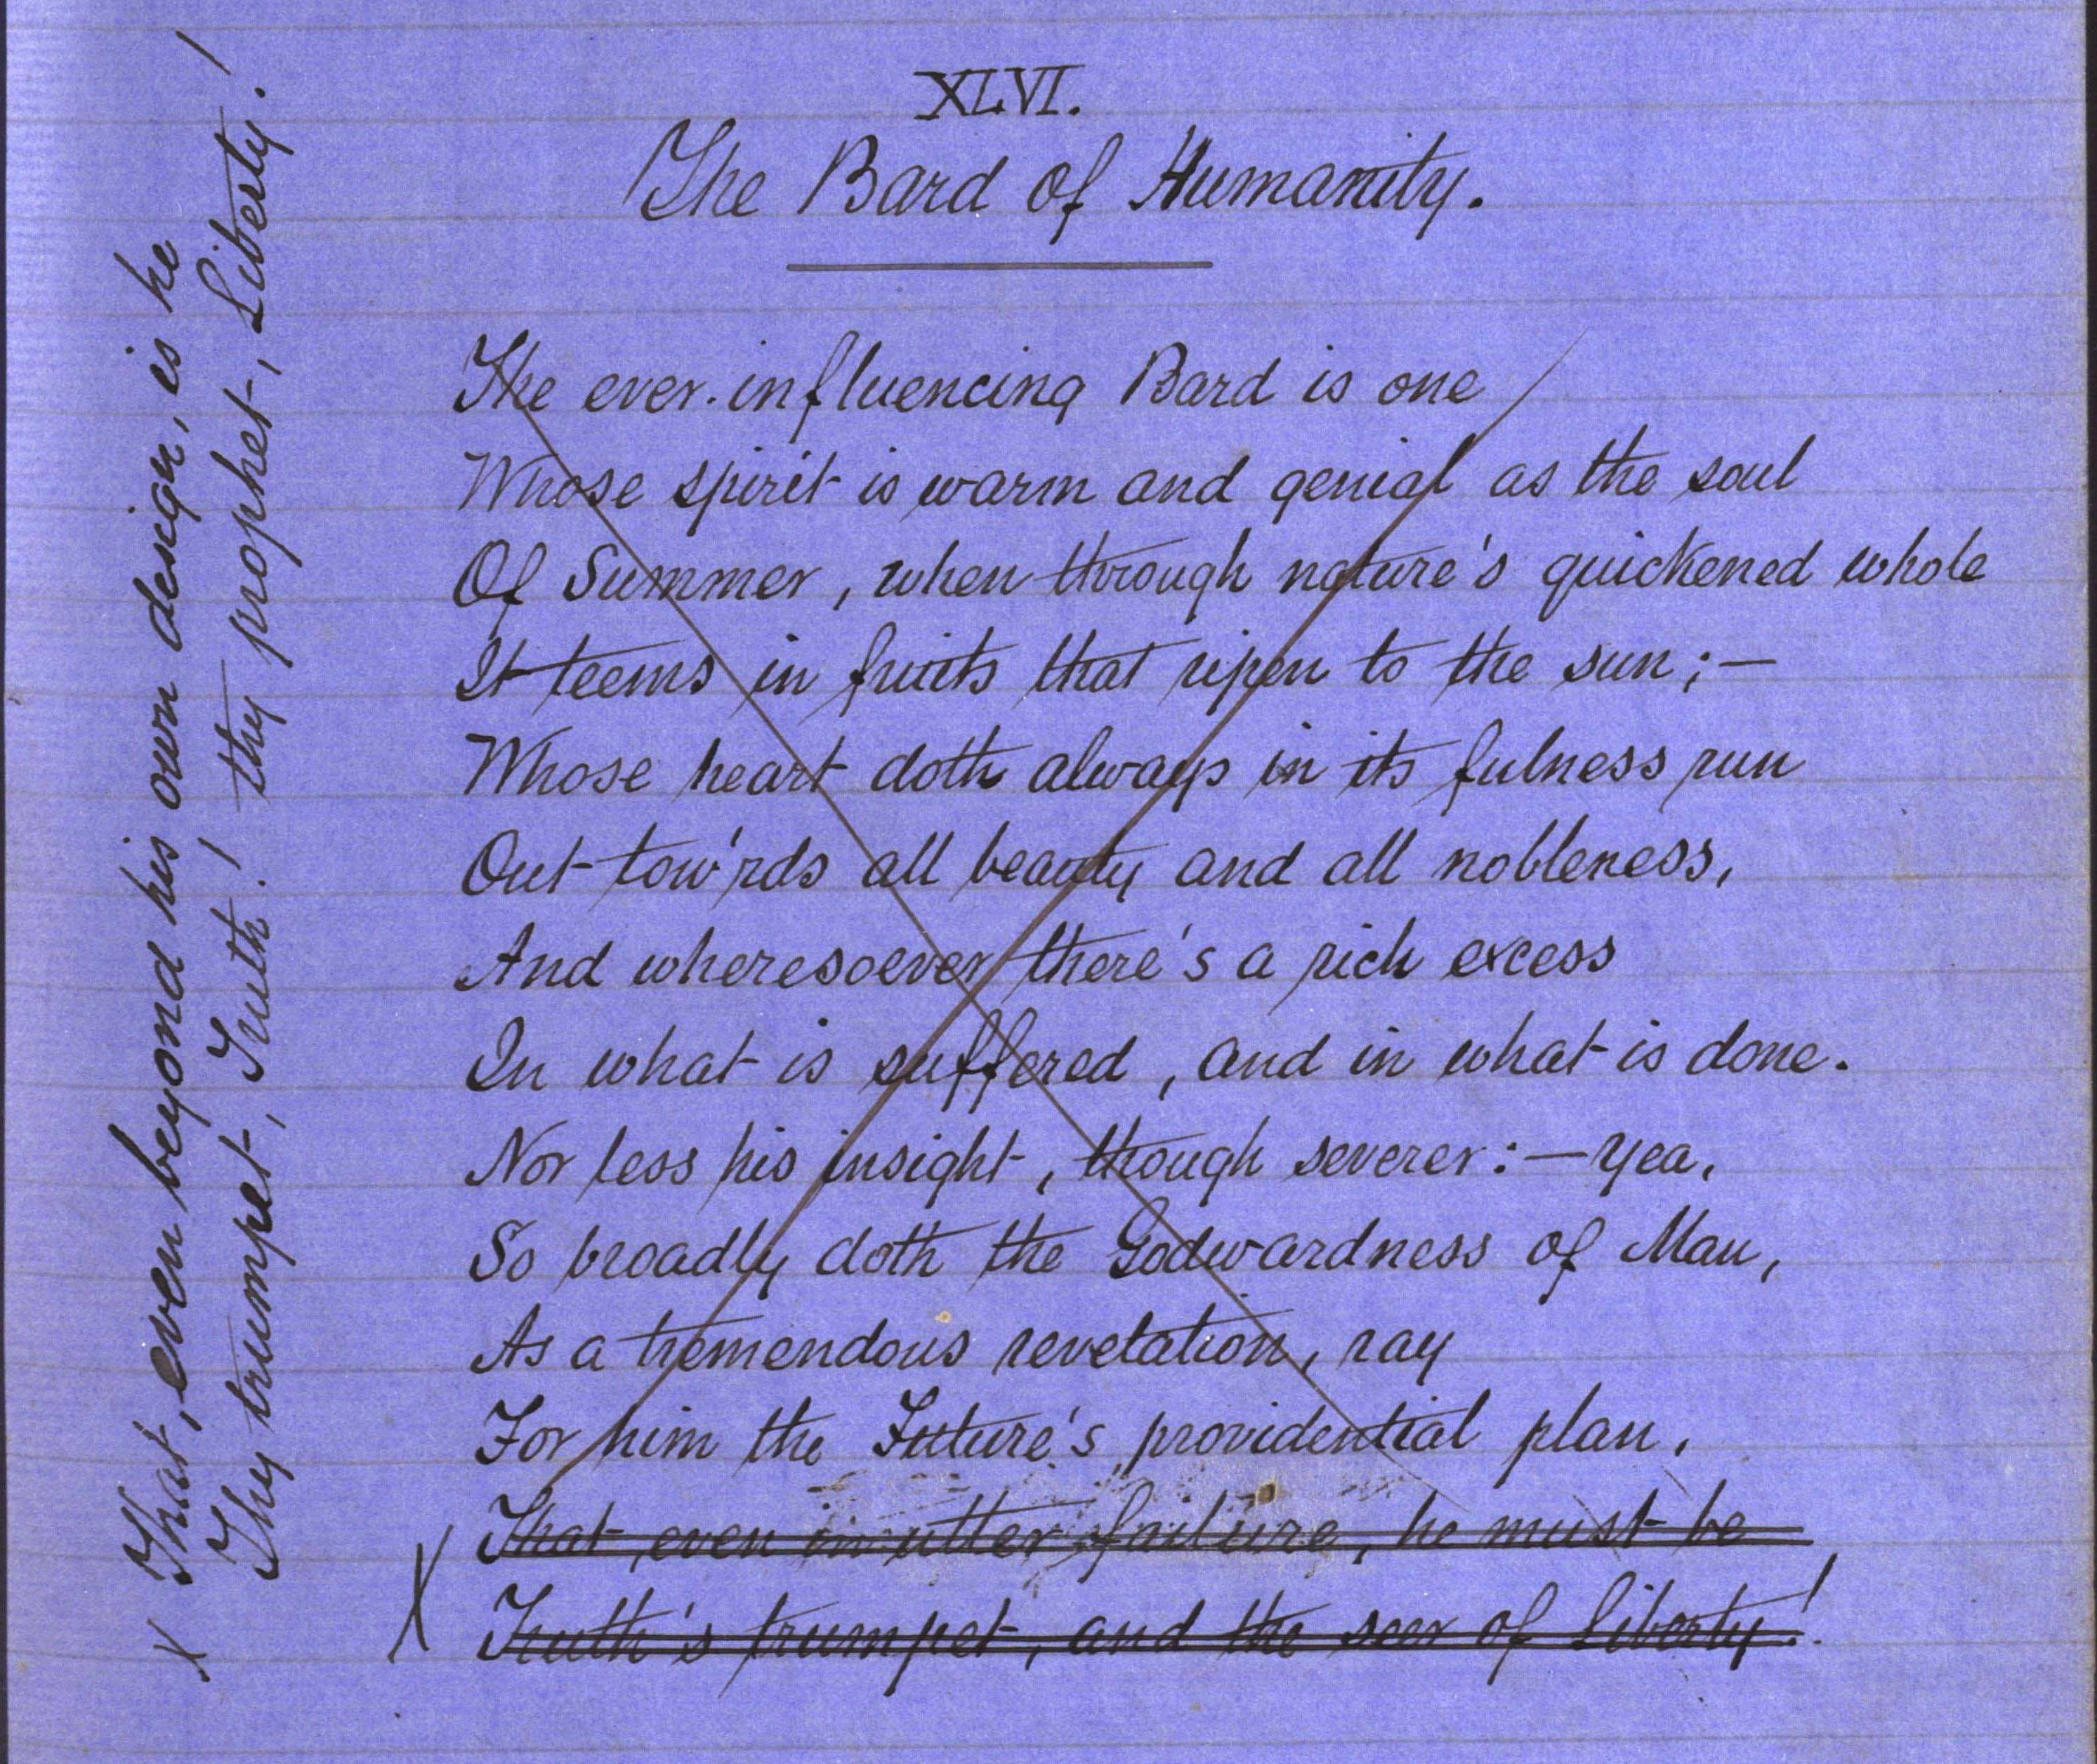 XLVI.
The Bard of Humanity.
The ever-influencing Bard is one
Whose spirit is warm and genial as the soul
Of Summer, when through nature's quickened whole
It teems in fruits that ripen to the sun;—
Whose heart doth always in its fulness run
Out tow'rds all beauty and all nobleness,
And wheresoever there's a rich excess
In what is suffered, and in what is done.
Nor less his insight, though severer:—yea,
So broadly doth the Godwardness of Man,
As a tremendous revelation, ray
For him the Future's providential plan,
That, even in utter failure, he must be
X Truth's trumpet, and the seer of Liberty!
X That, even beyond his own design, is he
Thy trumpet, Truth! thy prophet, Liberty!